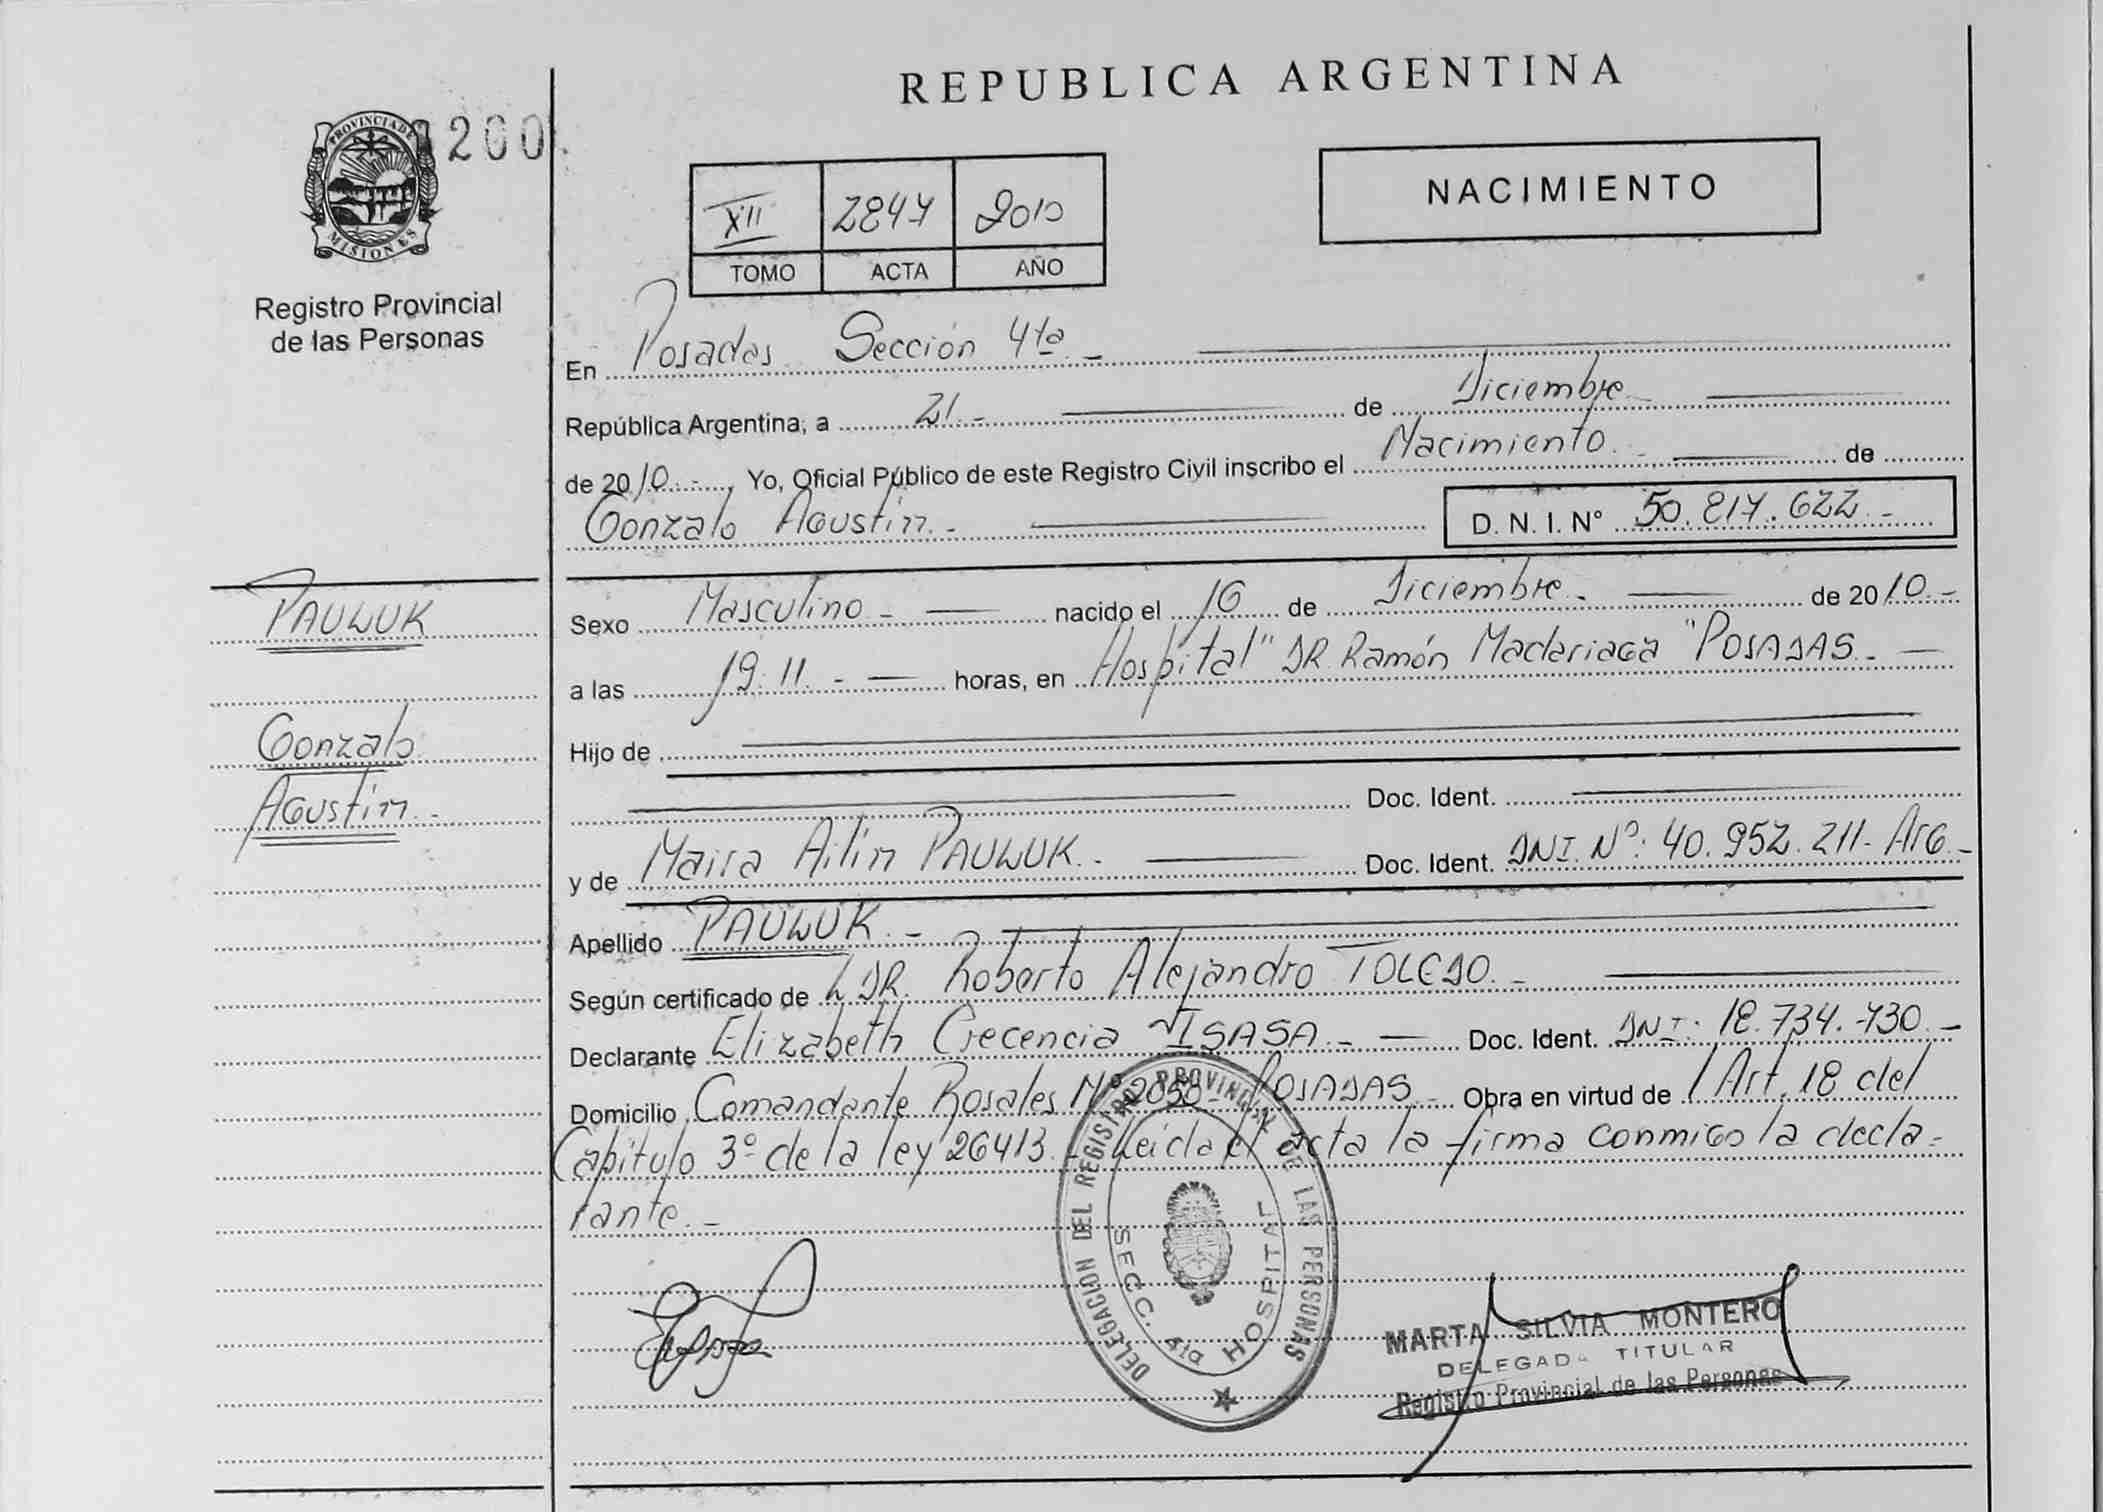 REPUBLICA ARGENTINA
PROVINCIA DE MISIONES
200
Registro Provincial
de las Personas
XII 2847 2010
TOMO ACTA AÑO
NACIMIENTO
En Posadas Sección 4ta -
República Argentina, a 21 - de Diciembre
de 2010 - , Yo, Oficial Público de este Registro Civil inscribo el Nacimiento - de
Gonzalo Agustín - D. N. I. N° 50.817.622 -
PAULUK
Gonzalo
Agustín -
Sexo Masculino - nacido el 16 de Diciembre - de 2010 -
a las 19:11 - horas, en Hospital "DR. Ramón Madariaga" POSADAS -
Hijo de
Doc. Ident.
y de Maira Ailin PAULUK - Doc. Ident. DNI. N°: 40.952.211 - Arg -
Apellido PAULUK -
Según certificado de L DR. Roberto Alejandro TOLEDO -
Declarante Elizabeth Crecencia VISASA - Doc. Ident. DNI: 18.734.730 -
Domicilio Comandante Rosales N° 2050 - POSADAS - Obra en virtud de l Art. 18 del
Capítulo 3° de la ley 26413 - Leida el acta la firma conmigo la decla-
rante -
DELEGACION DEL REGISTRO PROVINCIAL DE LAS PERSONAS
SECC. 4ta HOSPITAL
MARTA SILVIA MONTERO
DELEGADA TITULAR
Registro Provincial de las Personas